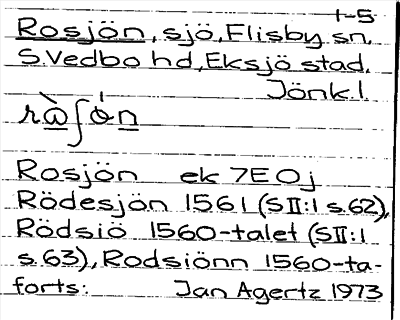 1-5
Rosjön, sjö, Flisby sn,
S.Vedbo hd, Eksjö stad,
Jönk.l.
Rosjön ek 7E0j
Rödesjön 1561 (SII:1 s.62),
Rödsiö 1560-talet (SII:1
s.63), Rodsiönn 1560-ta-
forts: Jan Agertz 1973